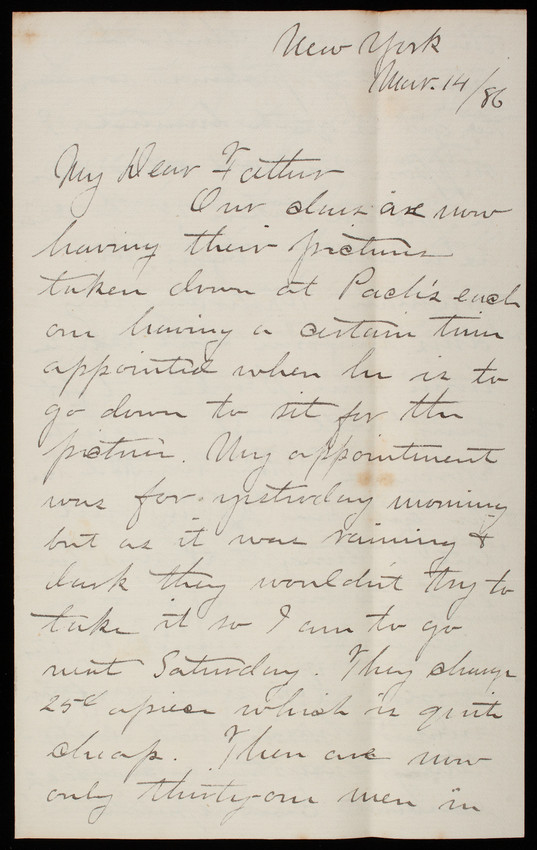 New York
Mar. 14/86
My Dear Father
Our class are now
having their pictures
taken down at Pach's each
one having a certain time
appointed when he is to
go down to sit for the
picture. My appointment
was for yesterday morning
but as it was raining &
dark they wouldn't try to
take it so I am to go
next Saturday. They charge
25¢ apiece which is quite
cheap. There are now
only thirty-one men in